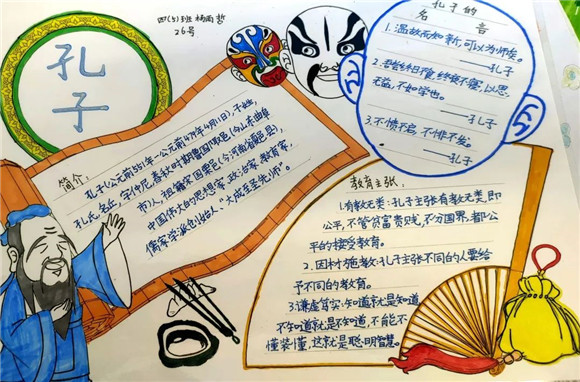 四(5)班 杨雨哲
26号
孔子
简介:
孔子(公元前551年-公元前479年4月11日),子姓,
孔氏,名丘,字仲尼,春秋时期鲁国陬邑(今山东曲阜
市)人,祖籍宋国栗邑(今河南省夏邑县),
中国伟大的思想家、政治家、教育家,
儒家学派创始人、“大成至圣先师”。
孔子的
名言
1.温故而知新,可以为师矣。
——孔子
2.吾尝终日不食,终夜不寝,以思,
无益,不如学也。
——孔子
3.不愤不启,不悱不发。
——孔子
教育主张:
1.有教无类:孔子主张有教无类,即
公平,不管贫富贵贱,不分国界,都公
平的接受教育。
2.因材施教:孔子主张不同的人要给
予不同的教育。
3.谦虚真实:知道就是知道
不知道就是不知道,不能不
懂装懂,这就是聪明智慧。